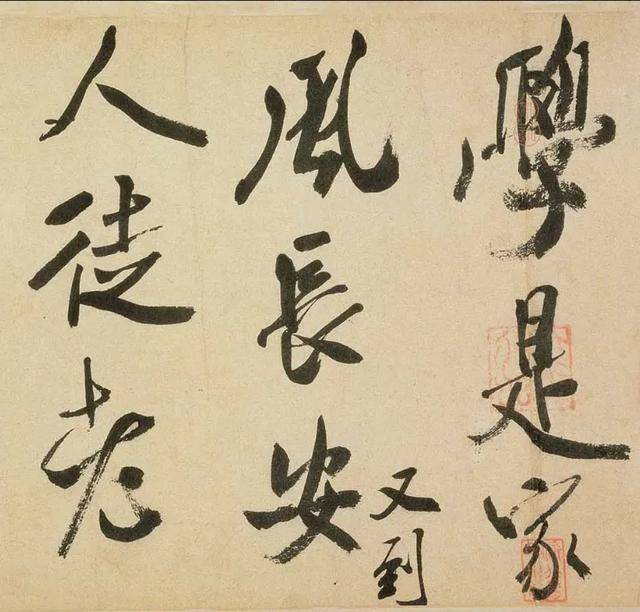 學是家
風長安
又到
人徒老